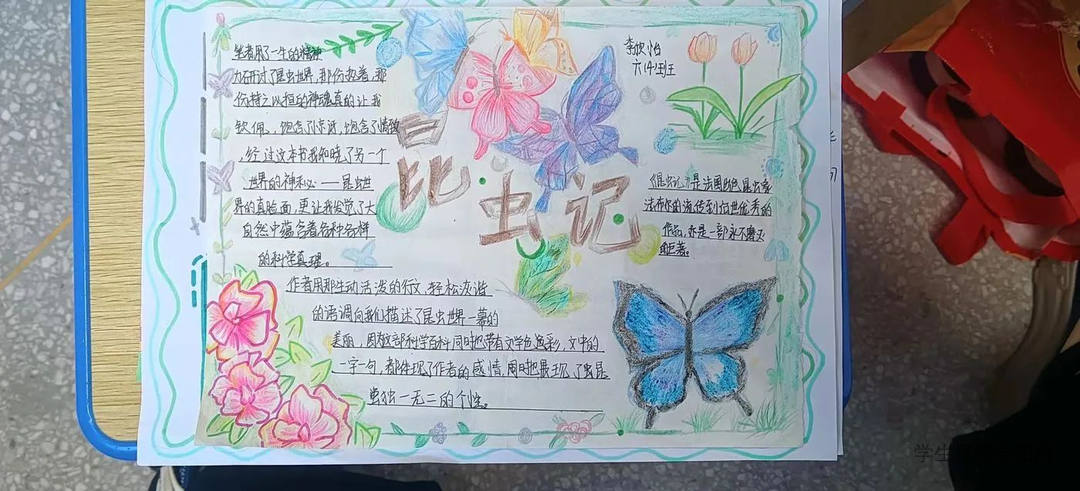 笔者用了一生的精神
力研讨了昆虫世界,那份执着,那
份持之以恒的神魂真的让我
钦佩。饱含了沧
,经过这本书我知晓了另一个
世界的神秘——昆虫世
界的真脸面,更让我知觉了大
自然中蕴含着各种各样
的科学真理。
昆虫记
李欣怡
六(4)班
《昆虫记》是法国 昆虫家
法布尔的流传到后世优秀的
作品,亦是一部永不磨灭
的巨著。
作者用那生动活泼的行文,轻松诙谐
的语调向我们描述了昆虫世界一幕的
美丽,因教部科学百科同时也带有文学色彩,文中的
一字一句,都体现了作者的感情,同时也展现了昆
虫独一无二的个性。